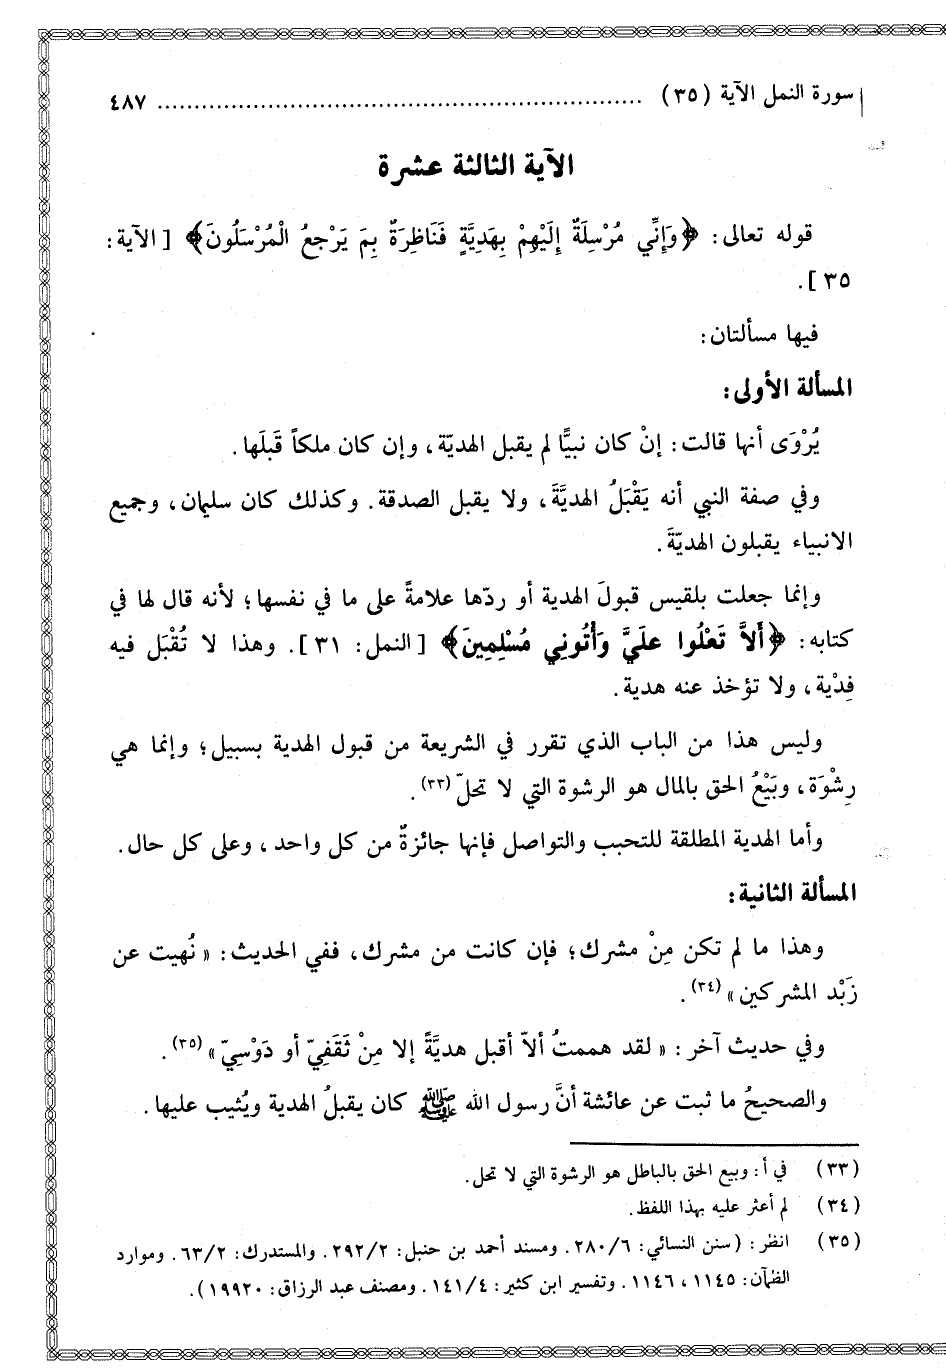 سورة النمل الآية (٣٥) ................................................................ ٤٨٧
الآية الثالثة عشرة
قوله تعالى: ﴿وَإِنِّي مُرْسِلَةٌ إِلَيْهِمْ بِهَدِيَّةٍ فَنَاظِرَةٌ بِمَ يَرْجِعُ الْمُرْسَلُونَ﴾ [الآية:
٣٥].
فيها مسألتان:
المسألة الأولى:
يُرْوَى أنها قالت: إنْ كان نبيًّا لم يقبل الهديّة، وإن كان ملكاً قَبلَها.
وفي صفة النبي أنه يَقْبَلُ الهديَّةَ، ولا يقبل الصدقة. وكذلك كان سليمان، وجميع
الانبياء يقبلون الهديّةَ.
وإنما جعلت بلقيس قبولَ الهدية أو ردّها علامةً على ما في نفسها؛ لأنه قال لها في
كتابه: ﴿أَلاَّ تَعْلُوا علَيَّ وَأْتُونِي مُسْلِمِينَ﴾ [النمل: ٣١]. وهذا لا تُقْبَل فيه
فِدْية، ولا تؤخذ عنه هدية.
وليس هذا من الباب الذي تقرر في الشريعة من قبول الهدية بسبيل؛ وإنما هي
رِشْوَة، وبَيْعُ الحق بالمال هو الرشوة التي لا تحلّ (٣٣).
وأما الهدية المطلقة للتحبب والتواصل فإنها جائزةٌ من كل واحد، وعلى كل حال.
المسألة الثانية:
وهذا ما لم تكن مِنْ مشرك؛ فإن كانت من مشرك، ففي الحديث: «نُهيت عن
زَبْد المشركين» (٣٤).
وفي حديث آخر: «لقد هممتُ ألاّ أقبل هديَّةً إلا مِنْ ثَقَفِيّ أو دَوْسِيّ» (٣٥).
والصحيحُ ما ثبت عن عائشة أنَّ رسول الله ﷺ كان يقبلُ الهدية ويُثيب عليها.
(٣٣) في أ: وبيع الحق بالباطل هو الرشوة التي لا تحل.
(٣٤) لم أعثر عليه بهذا اللفظ.
(٣٥) انظر: (سنن النسائي: ٢٨٠/٦. ومسند أحمد بن حنبل: ٢٩٢/٢. والمستدرك: ٦٣/٢. وموارد
الظمآن: ١١٤٥، ١١٤٦. وتفسير ابن كثير: ١٤١/٤. ومصنف عبد الرزاق: ١٩٩٢٠).